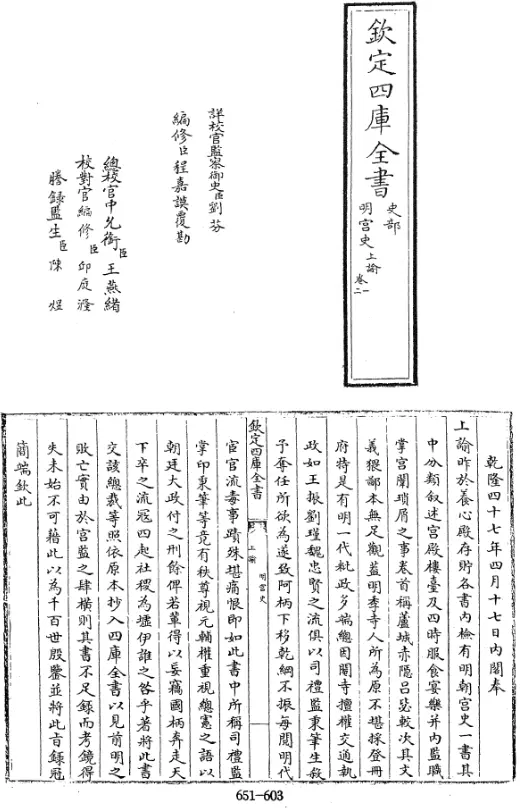 欽定四庫全書
史部
明宮史 上諭
卷一
卷二
詳校官監察御史臣劉芬
編修臣程嘉謨覆勘
總校官中允銜臣王燕緒
校對官編修臣邱庭漋
謄錄監生臣陳煜
乾隆四十七年四月十七日內閣奉
上諭昨於養心殿存貯各書內檢有明朝宮史一書其
中分類叙述宮殿樓臺及四時服食宴樂并內監職
掌宮闈瑣屑之事卷首稱蘆城赤隱呂毖較次其文
義猥鄙本無足觀蓋明季寺人所為原不堪採登冊
府特是有明一代秕政多端總因閹寺擅權交通執
政如王振劉瑾魏忠賢之流俱以司禮監秉筆生殺
予奪任所欲為遂致阿柄下移乾綱不振每閱明代
欽定四庫全書
上諭
明宮史
一
宦官流毒事蹟殊堪痛恨即如此書中所稱司禮監
掌印秉筆等竟有秩尊視元輔權重視總憲之語以
朝廷大政付之刑餘俾若輩得以妄竊國柄奔走天
下卒之流寇四起社稷為墟伊誰之咎乎著將此書
交該總裁等照依原本抄入四庫全書以見前明之
敗亡實由於宮監之肆橫則其書不足錄而考鏡得
失未始不可藉此以為千百世殷鑒並將此旨錄冠
簡端欽此
651-603